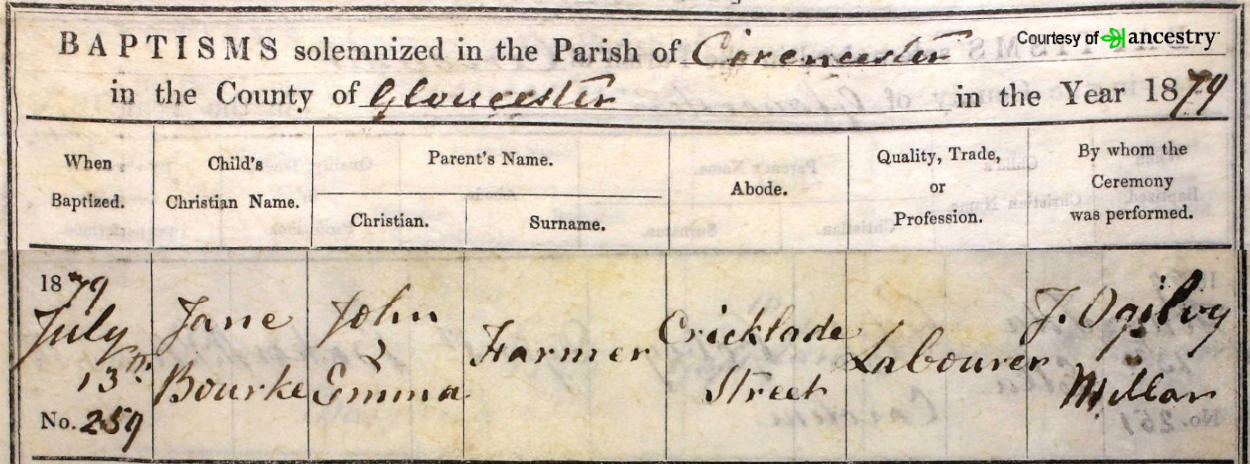 BAPTISMS solemnized in the Parish of Cirencester
Courtesy of ancestry
in the County of Gloucester in the Year 1879
When Baptized.
Child's Christian Name.
Parent's Name.
Christian.
Surname.
Abode.
Quality, Trade, or Profession.
By whom the Ceremony was performed.
1879
July
13th
No. 259
Jane
Bourke
John
&
Emma
Farmer
Cricklade
Street
Labourer
J. Ogilvy
Millar